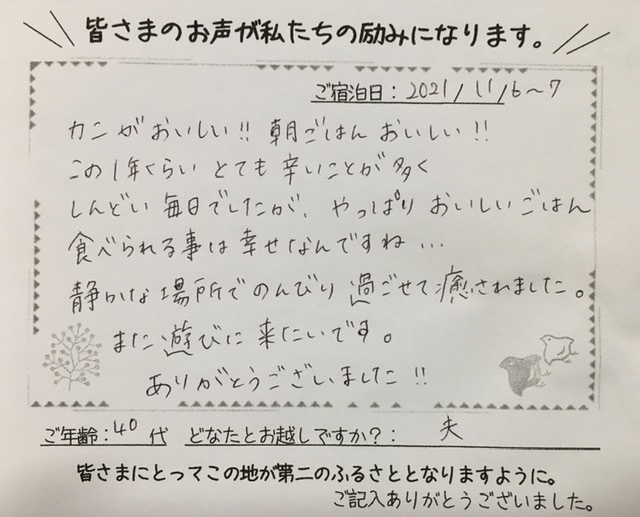 皆さまのお声が私たちの励みになります。
ご宿泊日：2021/11/6～7
カニがおいしい!! 朝ごはんおいしい!!
この1年くらい とても辛いことが多く
しんどい毎日でしたが、やっぱり おいしいごはん
食べられる事は幸せなんですね…
静かな場所でのんびり過ごせて癒されました。
また遊びに来たいです。
ありがとうございました!!
ご年齢：40代 どなたとお越しですか？：夫
皆さまにとってこの地が第二のふるさととなりますように。
ご記入ありがとうございました。